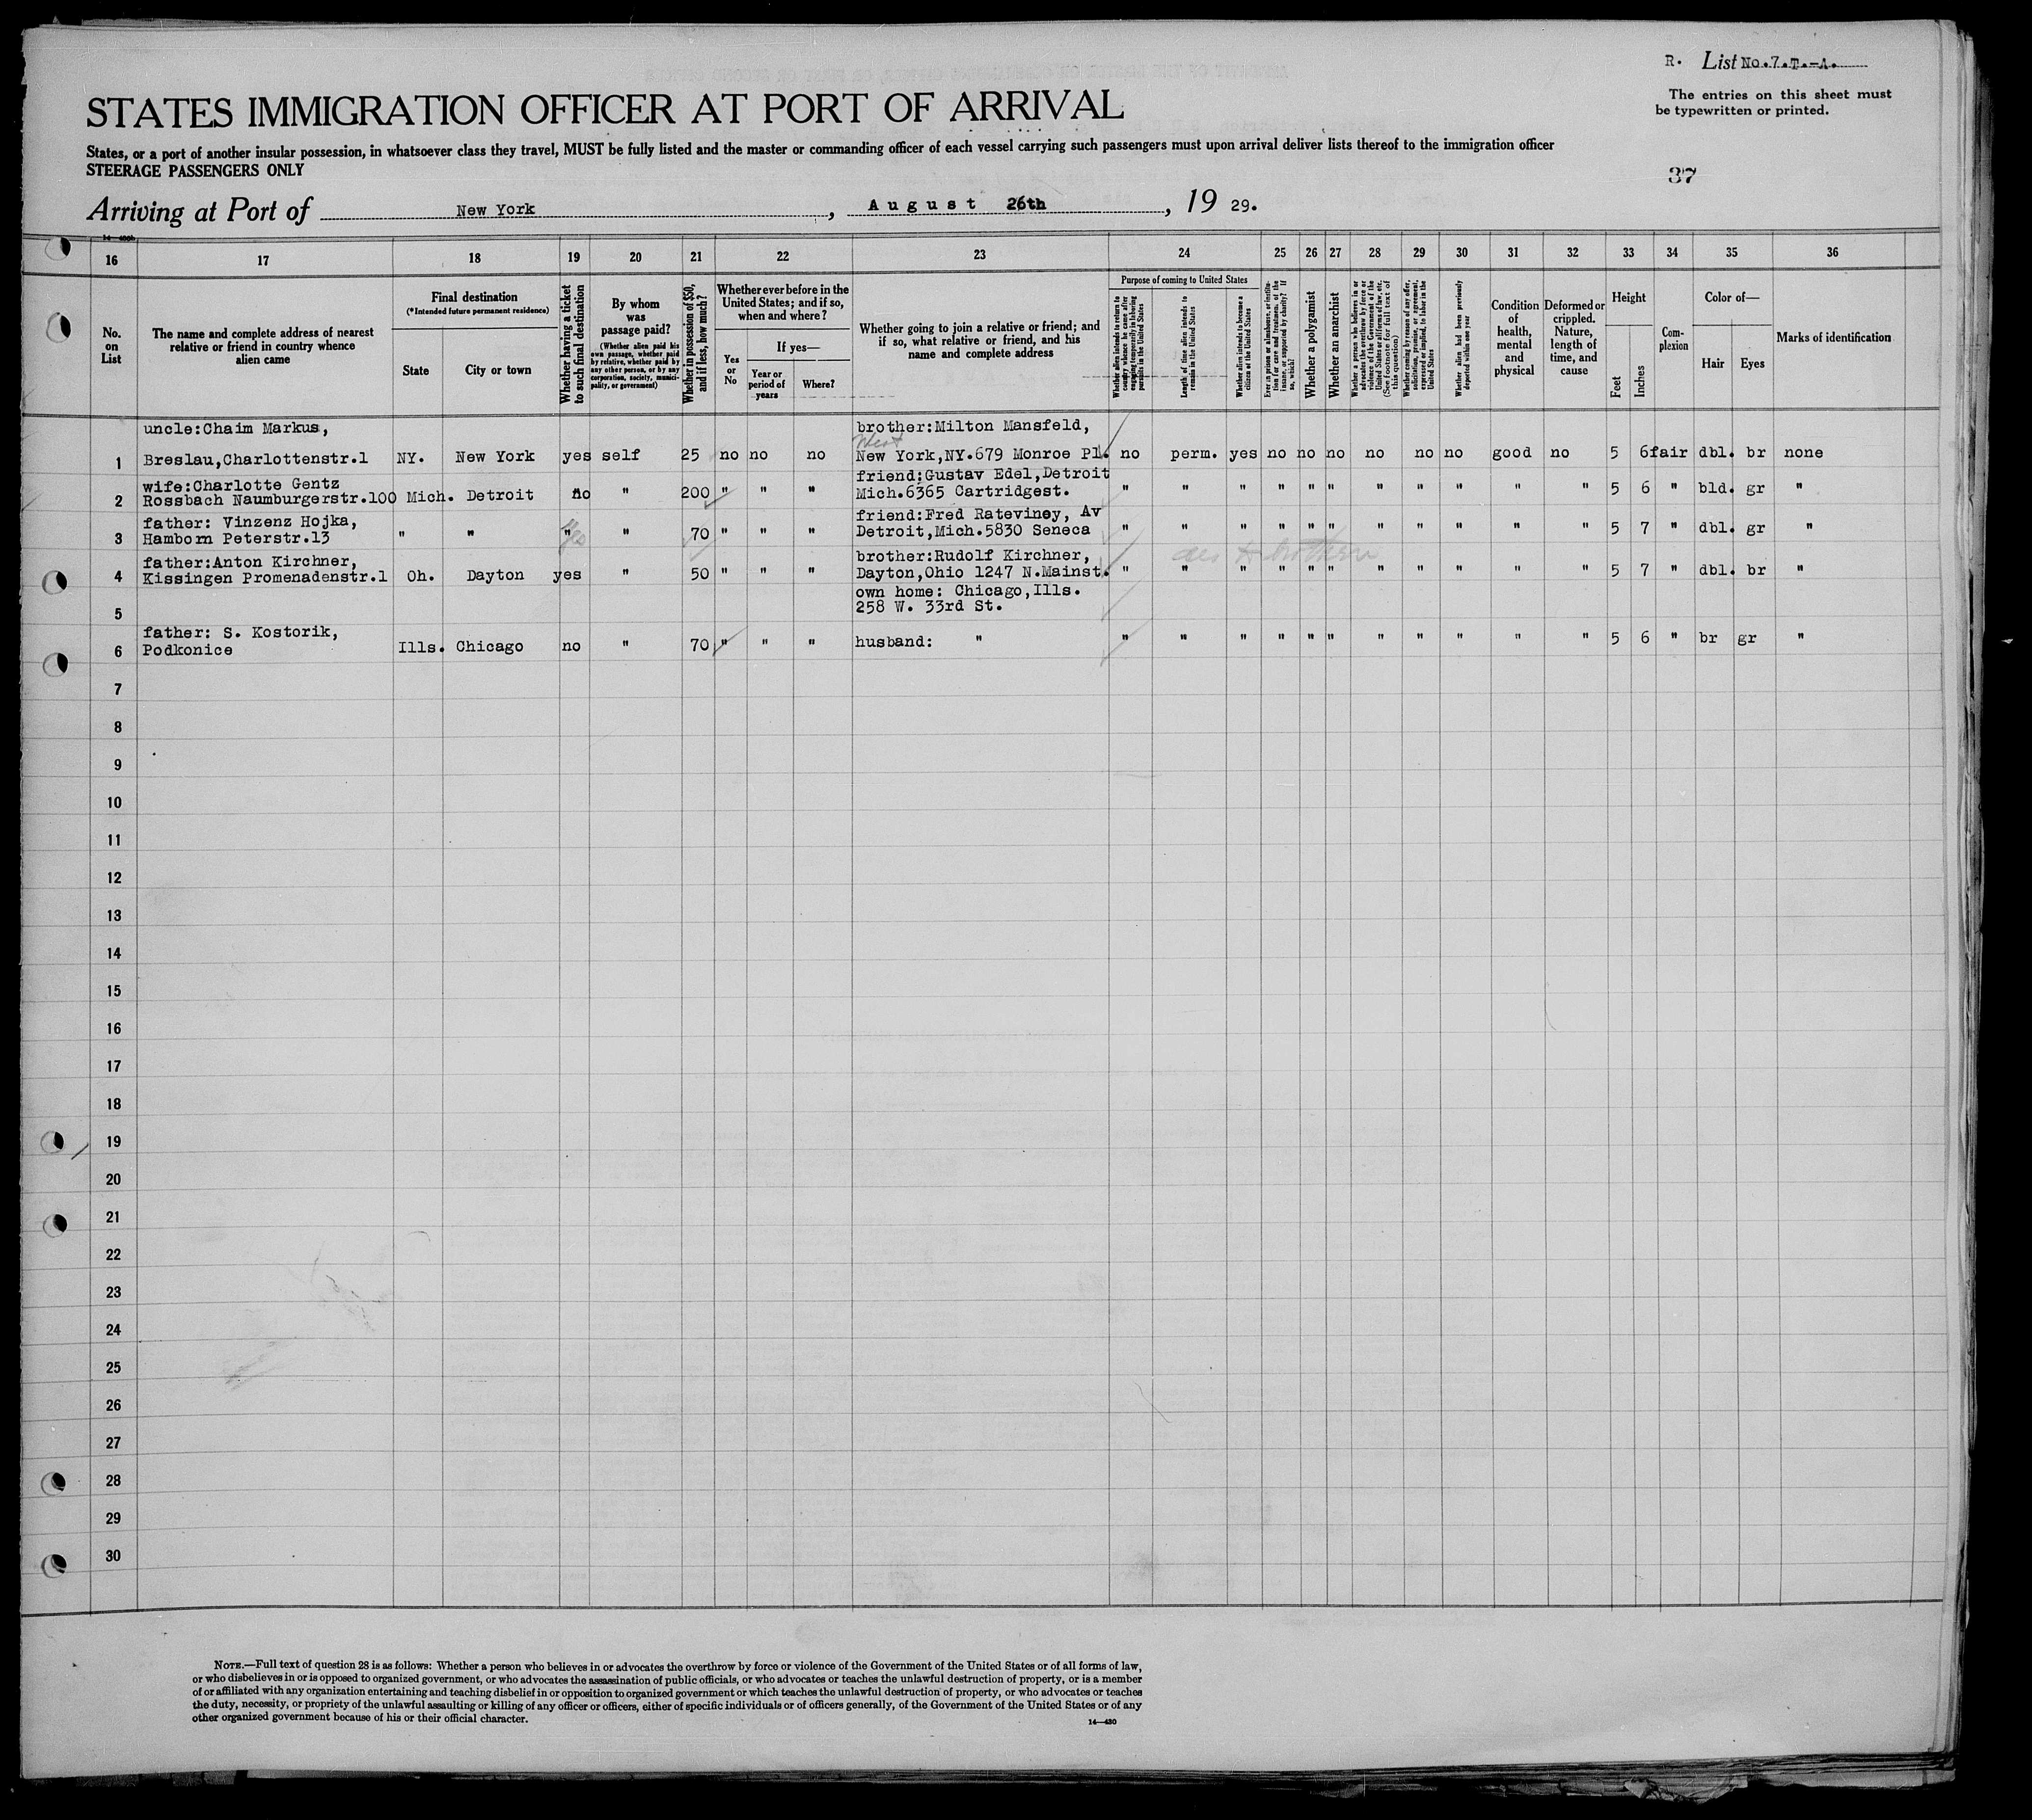 R. List No.7.T.-A.
The entries on this sheet must
be typewritten or printed.
STATES IMMIGRATION OFFICER AT PORT OF ARRIVAL
States, or a port of another insular possession, in whatsoever class they travel, MUST be fully listed and the master or commanding officer of each vessel carrying such passengers must upon arrival deliver lists thereof to the immigration officer
STEERAGE PASSENGERS ONLY
37
Arriving at Port of New York, August 26th, 19 29.
16 17 18 19 20 21 22 23 24 25 26 27 28 29 30 31 32 33 34 35 36
No.
on
List
The name and complete address of nearest
relative or friend in country whence
alien came
Final destination
(*Intended future permanent residence)
State
City or town
Whether having a ticket
to such final destination
By whom
was
passage paid?
(Whether alien paid his
own passage, whether paid
by relative, whether paid by
any other person, or by any
corporation, society, munici-
pality, or government)
Whether in possession of $50,
and if less, how much?
Whether ever before in the
United States; and if so,
when and where?
Yes
or
No
If yes—
Year or
period of
years
Where?
Whether going to join a relative or friend; and
if so, what relative or friend, and his
name and complete address
Purpose of coming to United States
Whether alien intends to return to
country whence he came after
engaging temporarily in laboring
pursuits in the United States
Length of time alien intends to
remain in the United States
Whether alien intends to become a
citizen of the United States
Ever in prison or almshouse, or institu-
tion for care and treatment of the
insane, or supported by charity? If
so, which?
Whether a polygamist
Whether an anarchist
Whether a person who believes in or
advocates the overthrow by force or
violence of the Government of the
United States or all forms of law, etc.
(See footnote for full text of
this question)
Whether coming by reason of any offer,
solicitation, promise, or agreement,
expressed or implied, to labor in the
United States
Whether alien had been previously
deported within one year
Condition
of
health,
mental
and
physical
Deformed or
crippled.
Nature,
length of
time, and
cause
Height
Feet
Inches
Com-
plexion
Color of—
Hair
Eyes
Marks of identification
uncle:Chaim Markus, brother:Milton Mansfeld,
West
1 Breslau,Charlottenstr.1 NY. New York yes self 25 no no no New York,NY.679 Monroe Pl. no perm. yes no no no no no no good no 5 6 fair dbl. br none
wife:Charlotte Gentz friend:Gustav Edel,Detroit
2 Rossbach Naumburgerstr.100 Mich. Detroit no " 200 " " " Mich.6365 Cartridgest. " " " " " " " " " " " 5 6 " bld. gr "
father: Vinzenz Hojka, friend:Fred Rateviney, Av
3 Hamborn Peterstr.13 " " " yes " 70 " " " Detroit,Mich.5830 Seneca " " " " " " " " " " " 5 7 " dbl. gr "
father:Anton Kirchner, brother:Rudolf Kirchner,
4 Kissingen Promenadenstr.1 Oh. Dayton yes " 50 " " " Dayton,Ohio 1247 N.Mainst. " " " " " " " " " " " 5 7 " dbl. br "
own home: Chicago,Ills.
5 258 W. 33rd St.
father: S. Kostorik,
6 Podkonice Ills. Chicago no " 70 " " " husband: " " " " " " " " " " " " 5 6 " br gr "
7
8
9
10
11
12
13
14
15
16
17
18
19
20
21
22
23
24
25
26
27
28
29
30
NOTE.—Full text of question 28 is as follows: Whether a person who believes in or advocates the overthrow by force or violence of the Government of the United States or of all forms of law,
or who disbelieves in or is opposed to organized government, or who advocates the assassination of public officials, or who advocates or teaches the unlawful destruction of property, or is a member
of or affiliated with any organization entertaining and teaching disbelief in or opposition to organized government or which teaches the unlawful destruction of property, or who advocates or teaches
the duty, necessity, or propriety of the unlawful assaulting or killing of any officer or officers, either of specific individuals or of officers generally, of the Government of the United States or of any
other organized government because of his or their official character.
14—430